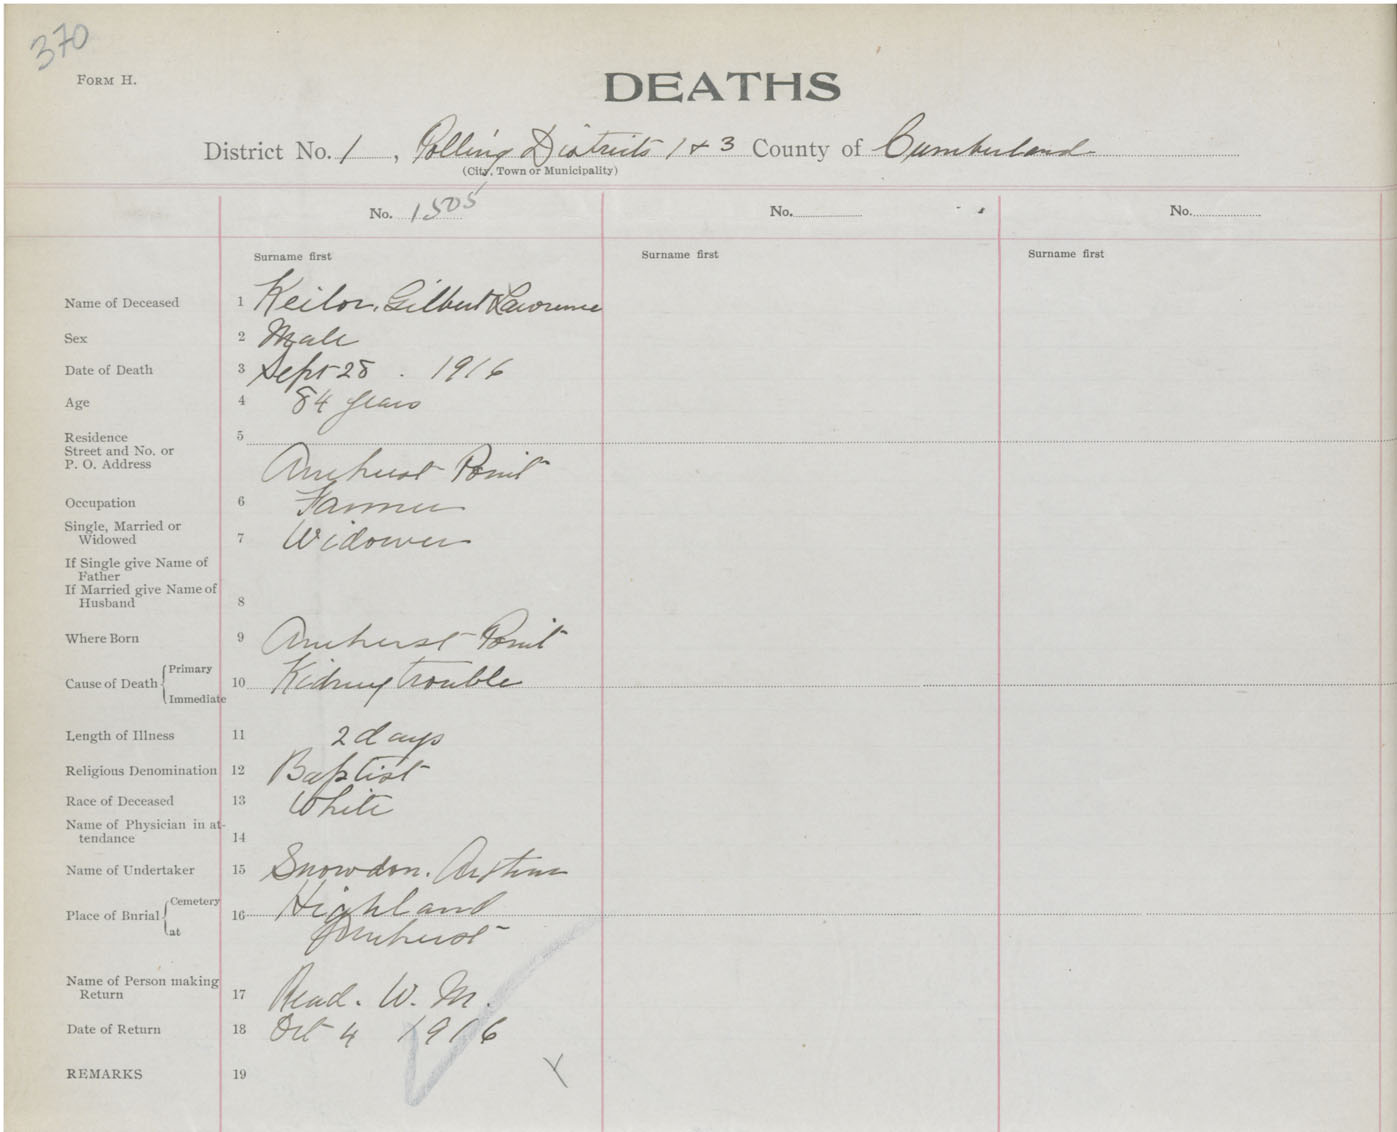 370
FORM H.
DEATHS
District No. 1, Polling Districts 1 & 3 County of Cumberland
(City, Town or Municipality)
No. 1505 No. No.
Surname first Surname first Surname first
Name of Deceased 1 Keilor, Gilbert Lawrence
Sex 2 Male
Date of Death 3 Sept 28. 1916
Age 4 84 years
Residence 5
Street and No. or
P. O. Address Amherst Point
Occupation 6 Farmer
Single, Married or
Widowed 7 Widower
If Single give Name of
Father
If Married give Name of
Husband 8
Where Born 9 Amherst Point
Cause of Death Primary
10 Kidney trouble
Immediate
Length of Illness 11 2 days
Religious Denomination 12 Baptist
Race of Deceased 13 White
Name of Physician in at-
tendance 14
Name of Undertaker 15 Snowdon. Arthur
Place of Burial Cemetery 16 Highland
at Amherst
Name of Person making
Return 17 Read. W. M.
Date of Return 18 Oct 4 1916
REMARKS 19